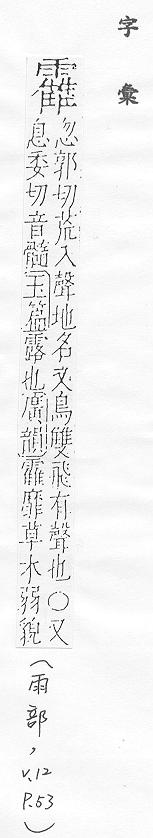 字彙
靃
忽郭切荒入聲地名又鳥雙飛有聲也○又
息委切音髓玉篇露也廣韻靃靡草木弱貌
(雨部, v.12 P.53)